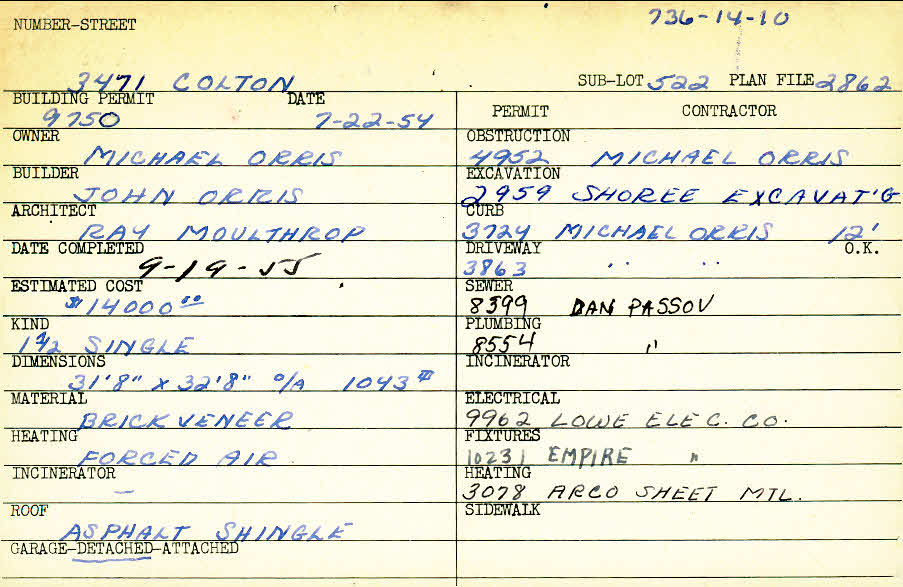 736-14-10
NUMBER-STREET
3471 COLTON SUB-LOT 522 PLAN FILE 2862
BUILDING PERMIT DATE
9750 7-22-54
OWNER
MICHAEL ORRIS
BUILDER
JOHN ORRIS
ARCHITECT
RAY MOULTHROP
DATE COMPLETED
9-19-55
ESTIMATED COST
$14000.00
KIND
1 1/2 SINGLE
DIMENSIONS
31'8" x 32'8" o/A 1043
MATERIAL
BRICK VENEER
HEATING
FORCED AIR
INCINERATOR
—
ROOF
ASPHALT SHINGLE
GARAGE-DETACHED-ATTACHED
PERMIT CONTRACTOR
OBSTRUCTION
4952 MICHAEL ORRIS
EXCAVATION
2959 SHOREE EXCAVAT'G
CURB
3724 MICHAEL ORRIS 12'
DRIVEWAY O.K.
3863 " "
SEWER
8399 DAN PASSOV
PLUMBING
8554 "
INCINERATOR
ELECTRICAL
9962 LOWE ELEC. CO.
FIXTURES
10231 EMPIRE "
HEATING
3078 ARCO SHEET MTL.
SIDEWALK